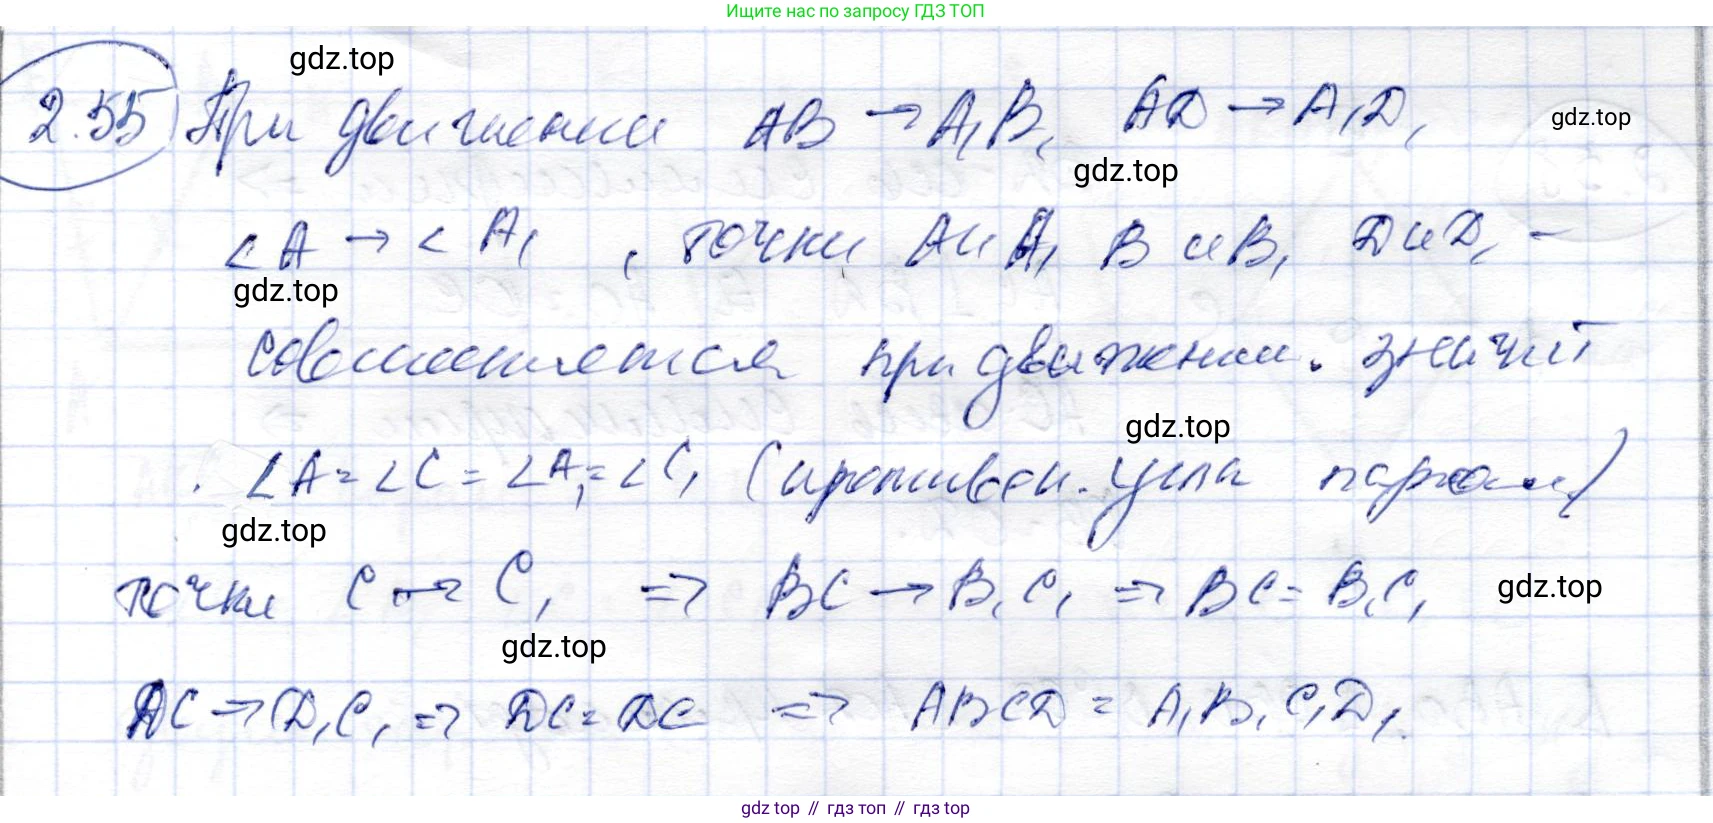 Ищите нас по запросу ГДЗ ТОП
gdz.top
2.55 При движении AB → A₁B₁ AD → A₁D₁
gdz.top
gdz.top
∠A → ∠A₁, точки A и A₁ B и B₁ D и D₁ –
gdz.top
совместятся при движении. значит
gdz.top
∠A = ∠C = ∠A₁ = ∠C₁ (противоп. угла паралл)
gdz.top
точки C → C₁ ⇒ BC → B₁C₁ ⇒ BC = B₁C₁
gdz.top
gdz.top
DC → D₁C₁ ⇒ DC = DC ⇒ ABCD = A₁B₁C₁D₁.
gdz top // гдз топ // gdz top